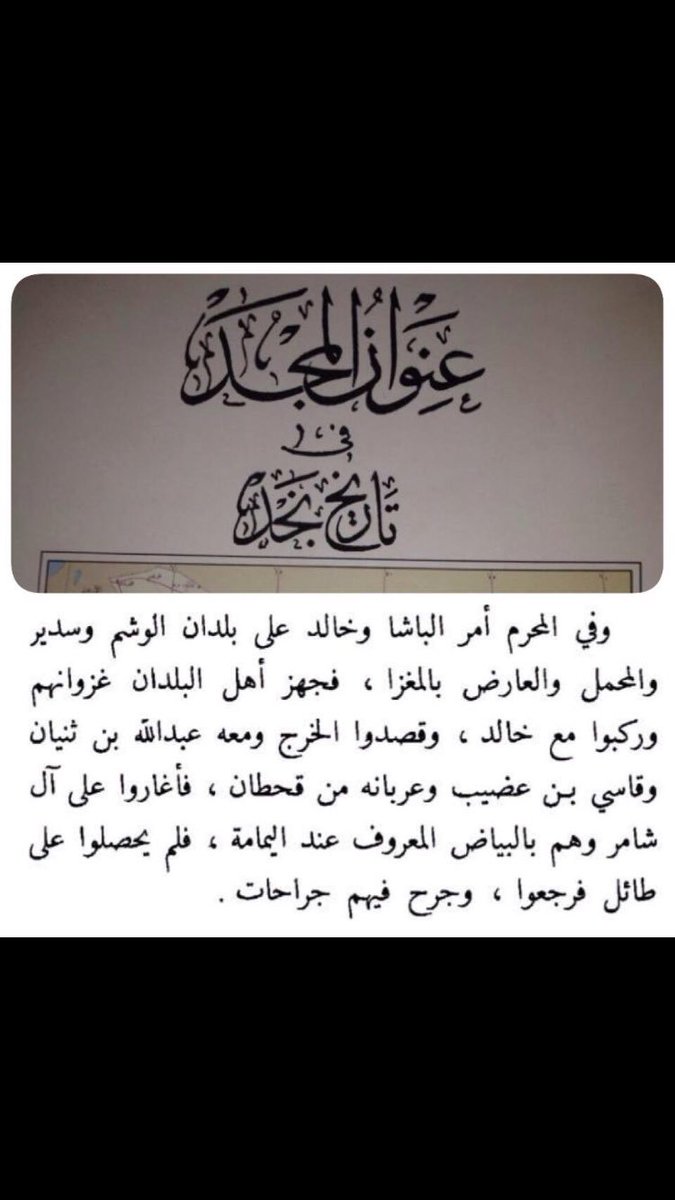 عِنوَانُ المَجْد
في
تَارِيخ نَجْد
وفي المحرم أمر الباشا وخالد على بلدان الوشم وسدير
والمحمل والعارض بالمغزا ، فجهز أهل البلدان غزوانهم
وركبوا مع خالد ، وقصدوا الخرج ومعه عبدالله بن ثنيان
وقاسي بن عضيب وعربانه من قحطان ، فأغاروا على آل
شامر وهم بالبياض المعروف عند اليمامة ، فلم يحصلوا على
طائل فرجعوا ، وجرح فيهم جراحات .